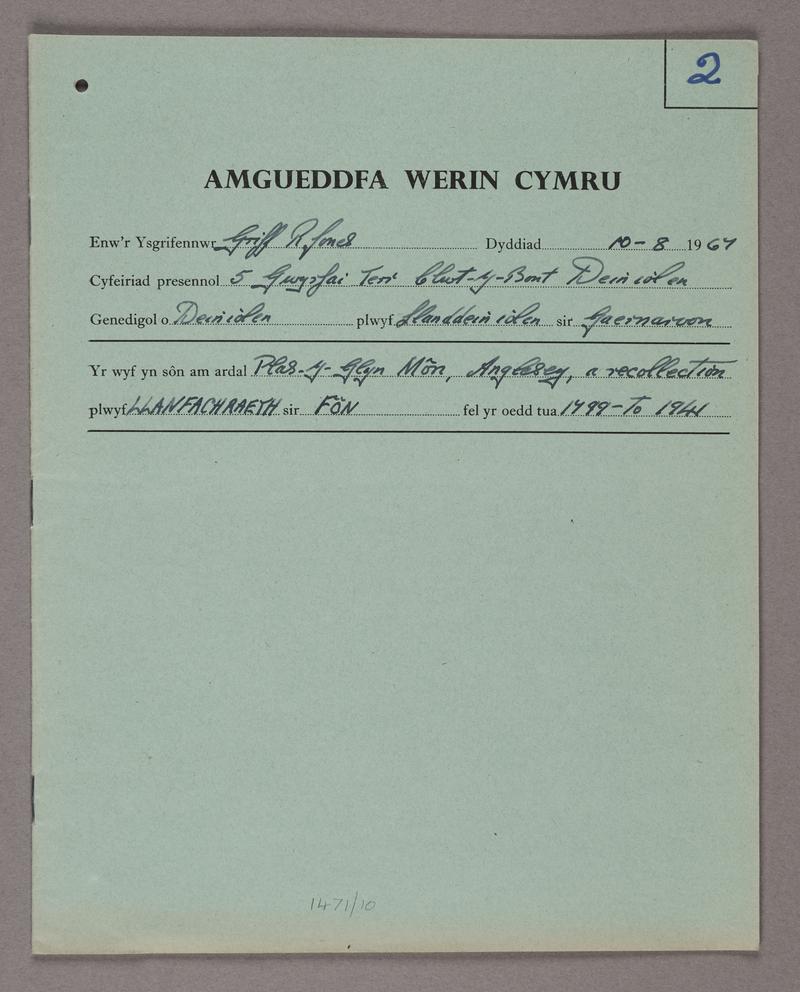 2
AMGUEDDFA WERIN CYMRU
Enw'r Ysgrifennwr Griff R Jones Dyddiad 10-8 1967
Cyfeiriad presennol 5 Gwyrfai Terr Clwt-y-Bont Deiniolen
Genedigol o Deiniolen plwyf Llanddeiniolen sir Gaernarvon
Yr wyf yn sôn am ardal Plas-y-Glyn Môn, Anglesey, a recollection
plwyf LLANFACHRAETH sir FÔN fel yr oedd tua 1799-To 1941
1471/10